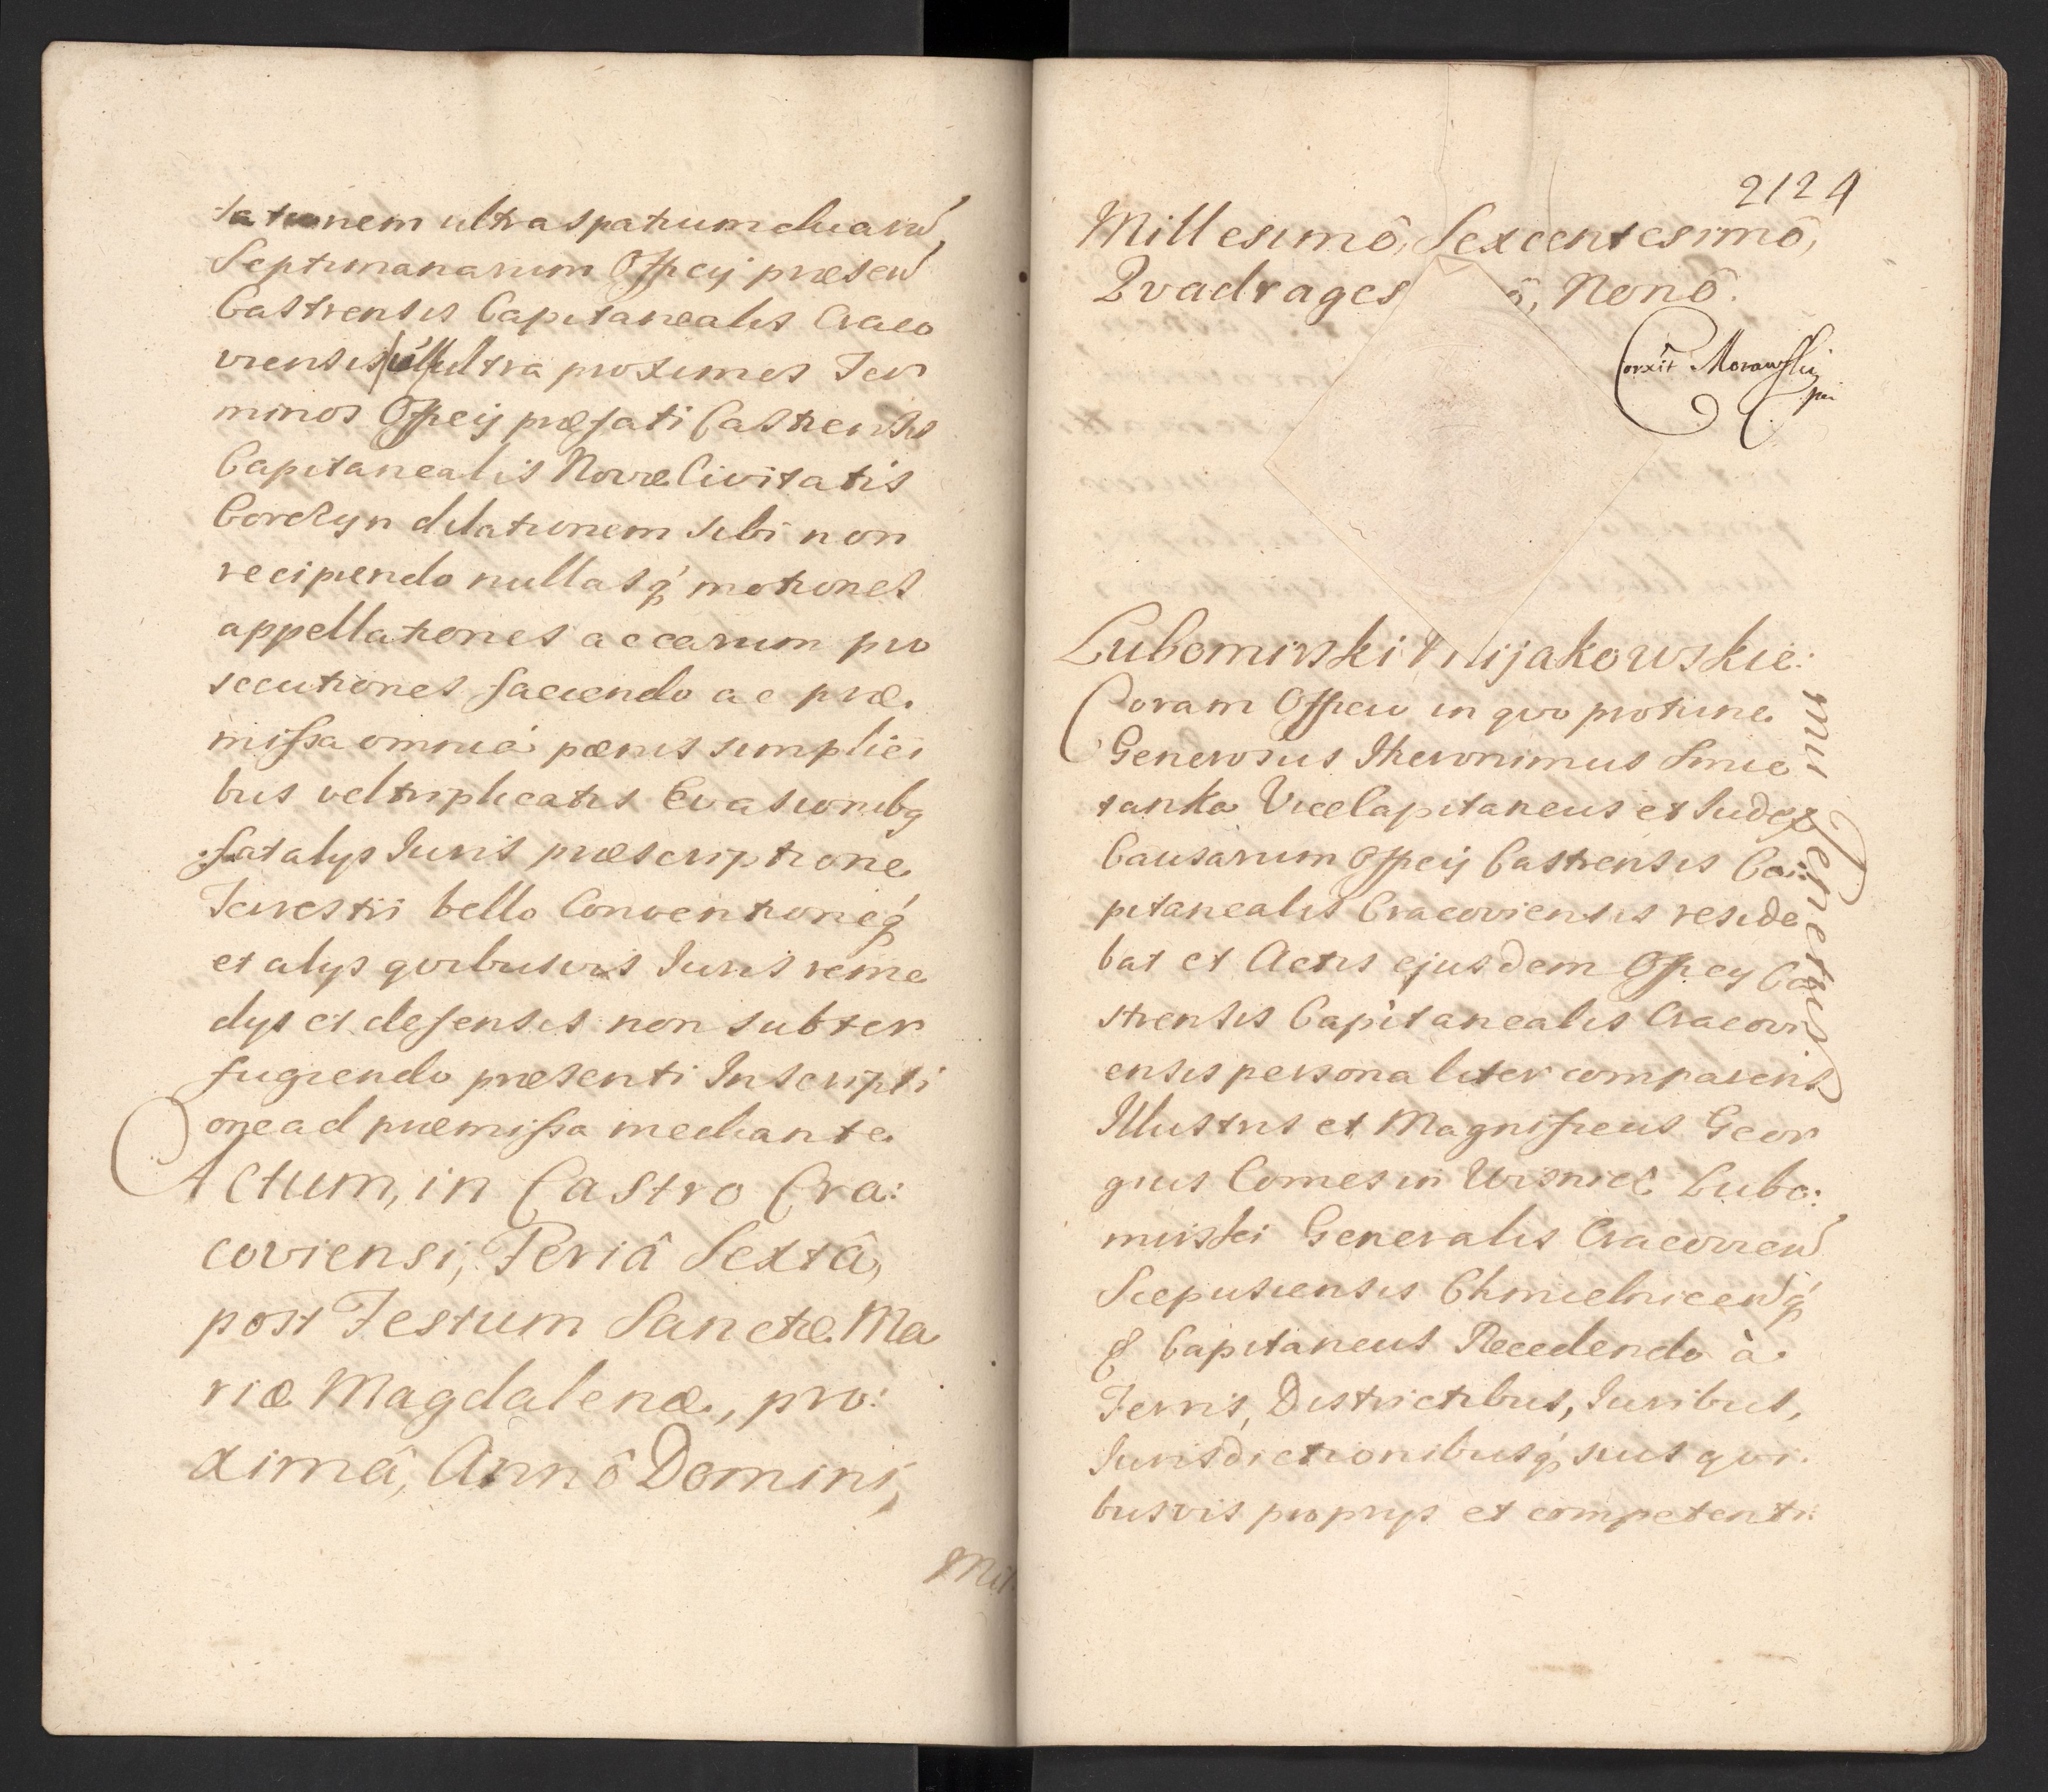 tationem ultra spatium duarũ
Septimanarum Offcij præsen̄
Castrensis Capitanealis Craco
viensis ultra proximos Ter
minos Offcij præfati Castrensis
Capitanealis Novæ Civitatis
Corczyn dilationem sibi non
recipiendo nullasq́ motiones
appellationes ac earum pro
secutiones faciendo ac præ
missa omnia pœnis simplici
bus vel triplicatis Evasionibq
fatalys Juris præscriptione
Terrestri bello Conventioneq́
et alys qvibusvis Juris reme
dys et defensis non subter
fugiendo præsenti Inscripti
one ad præmissa mediante
Actum, in Castro Cra:
coviensi, Feriâ Sextâ,
post Festum Sanctæ Ma
riæ Magdalenæ, pro:
ximâ, Annô Domini,
Mil
2124
Millesimô, Sexcentesimô,
Qvadrages ô, Nonô.
Corxit Morawski
Lubomirski ijakowskie:
mu Tenetur
Coram Offcio in qvo protunc
Generosus Hieronimus Smie
tanka ViceCapitaneus et Judex
Causarum Offcij Castrensis Ca:
pitanealis Cracoviensis reside
bat et Actis ejusdem Offcij Ca
strensis Capitanealis Cracovi
ensis personaliter comparens
Illustris et Magnificus Geor
gius Comes in Wisnicz Lubo:
mirski Generalis Cracovien̄
Scepusiensis Chmielnicen̄q́
& Capitaneus Recedendo à
Terris, Districtibus, Juribus,
Jurisdictionibusq́ suis qvi
busvis proprys et competenti: